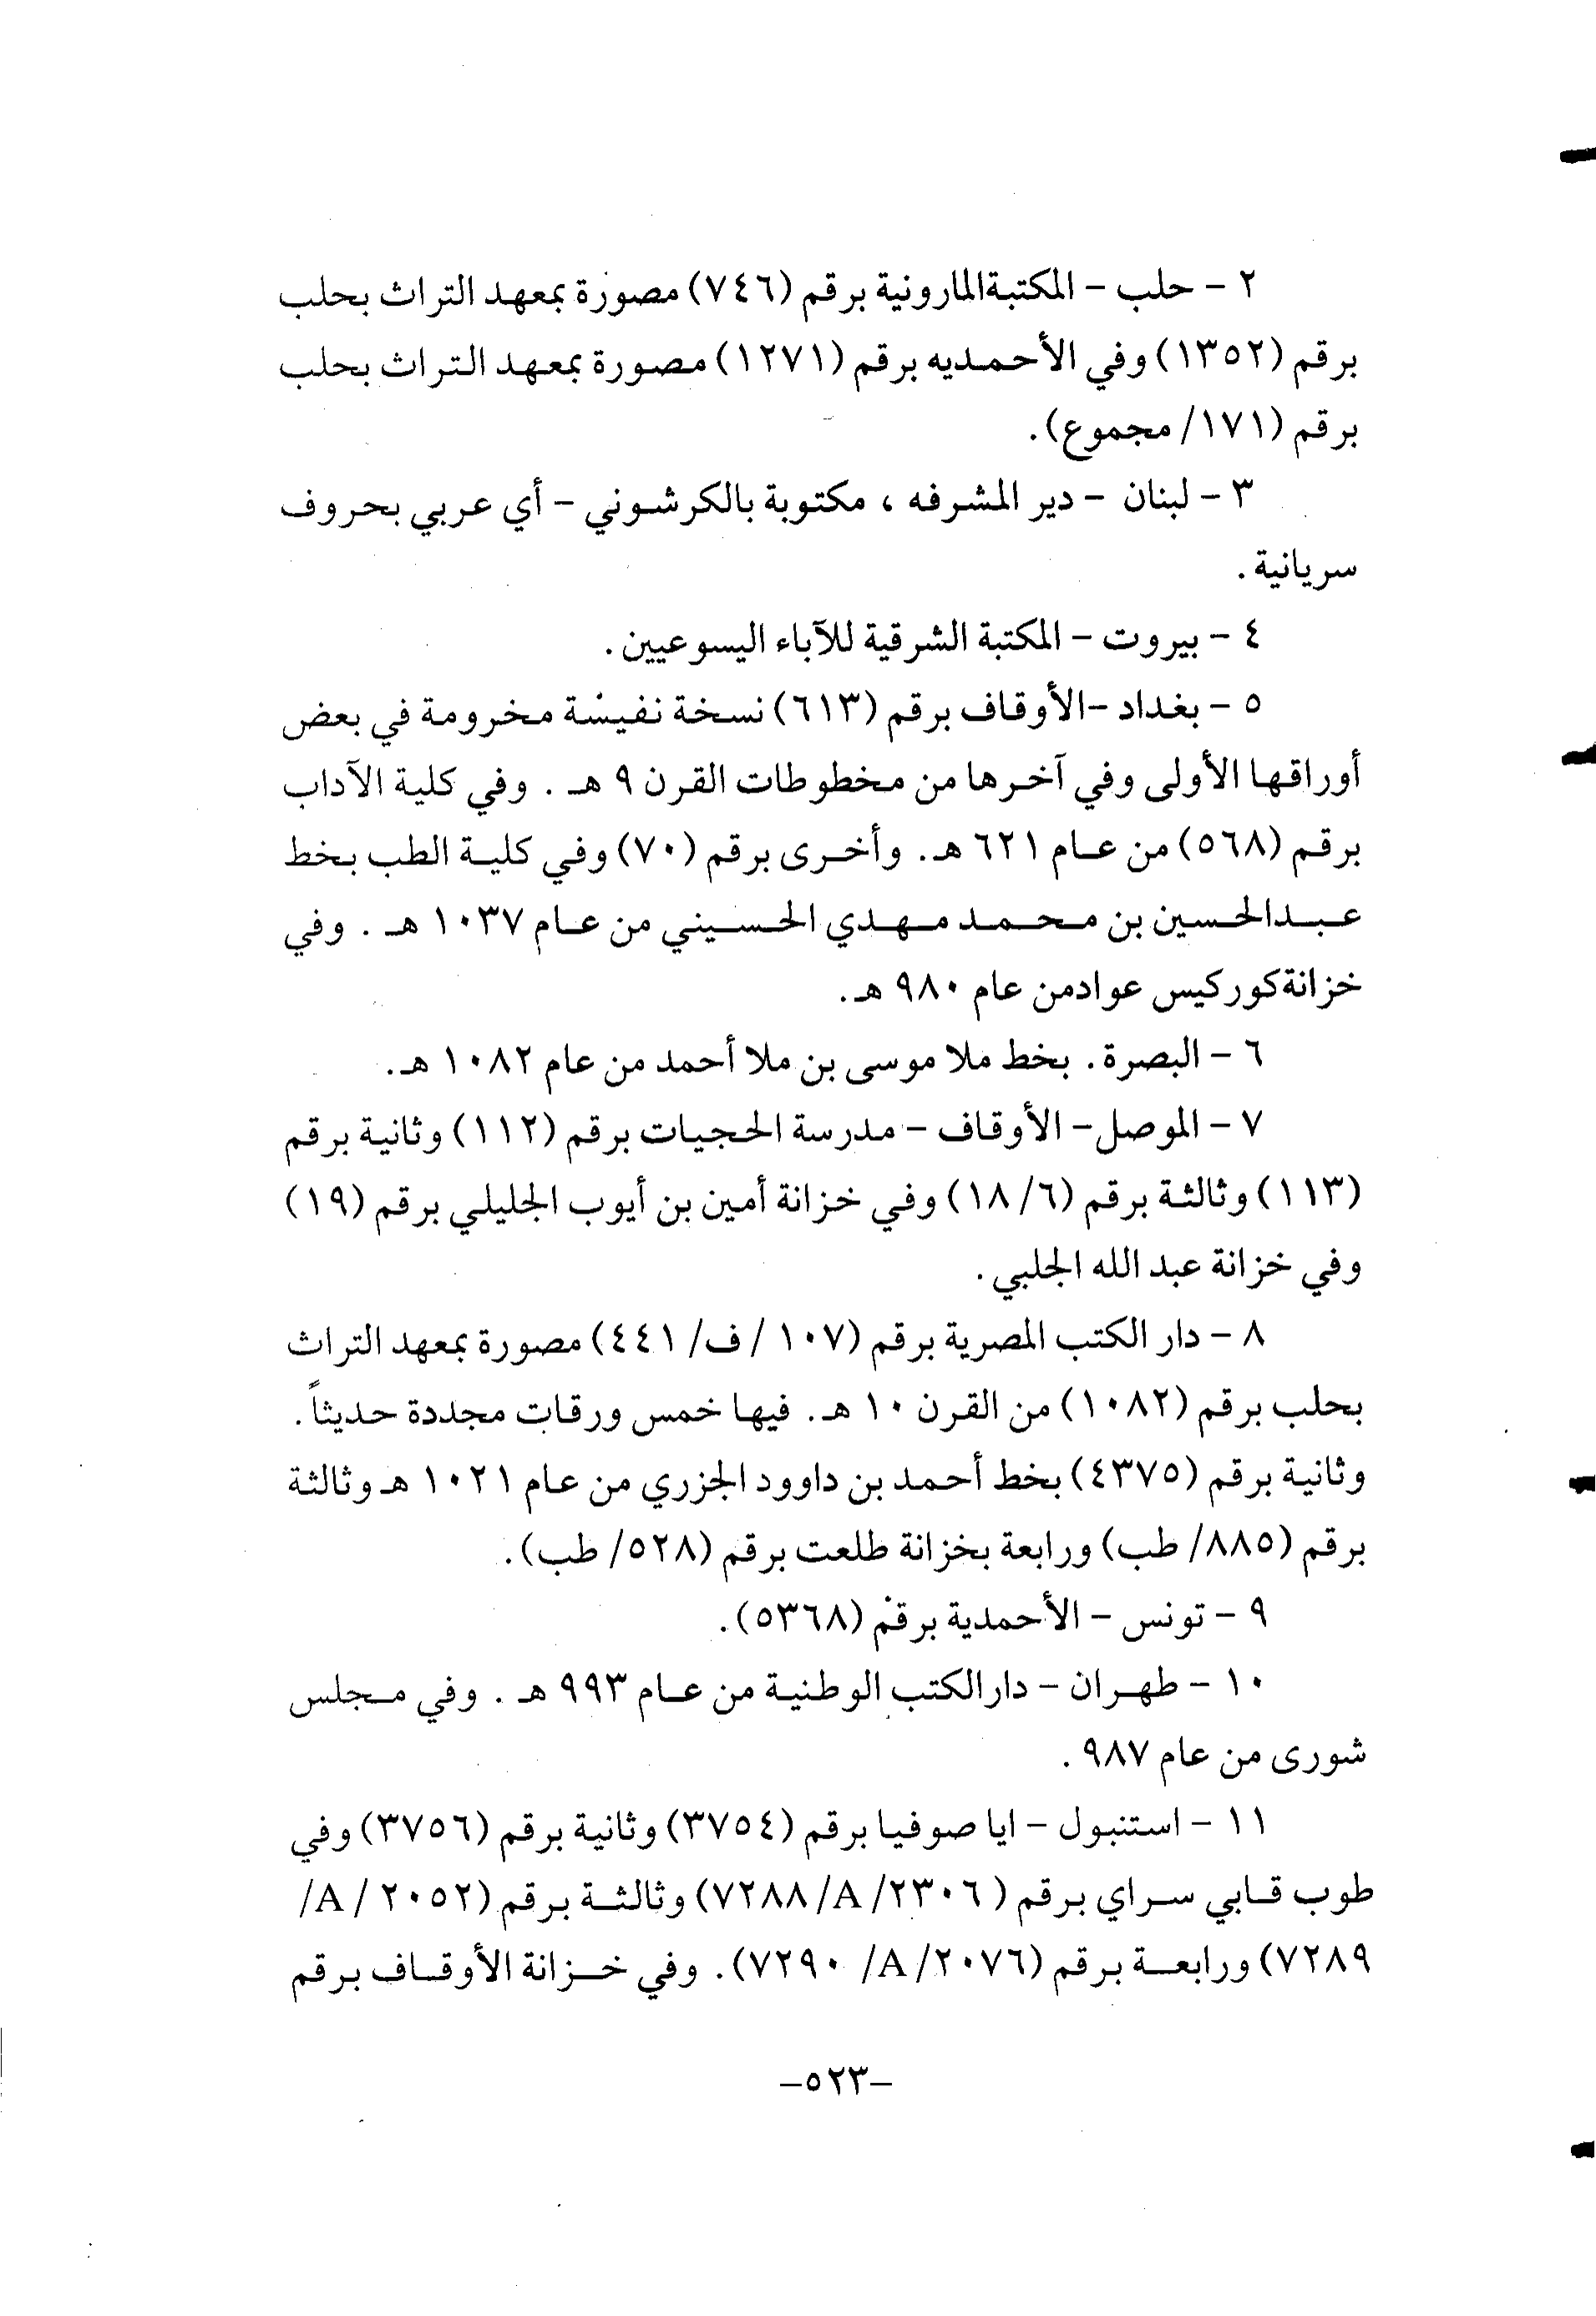 ٢ - حلب - المكتبةالمارونية برقم (٧٤٦) مصورة بمعهد التراث بحلب
برقم (١٣٥٢) وفي الأحمديه برقم (١٢٧١) مصورة بمعهد التراث بحلب
برقم (١٧١/ مجموع).
٣ - لبنان - دير المشرفه ، مكتوبة بالكرشوني - أي عربي بحروف
سريانية .
٤ - بيروت - المكتبة الشرقية للآباء اليسوعيين .
٥ - بغداد -الأوقاف برقم (٦١٣) نسخة نفيسة مخرومة في بعض
أوراقها الأولى وفي آخرها من مخطوطات القرن ٩ هـ . وفي كلية الآداب
برقم (٥٦٨) من عام ٦٢١ هـ. وأخرى برقم (٧٠) وفي كلية الطب بخط
عبدالحسين بن محمد مهدي الحسيني من عام ١٠٣٧ هـ . وفي
خزانةكوركيس عوادمن عام ٩٨٠ هـ.
٦ - البصرة . بخط ملا موسى بن ملا أحمد من عام ١٠٨٢ هـ.
٧ - الموصل- الأوقاف - مدرسة الحجيات برقم (١١٢) وثانية برقم
(١١٣) وثالثة برقم (١٨/٦) وفي خزانة أمين بن أيوب الجليلي برقم (١٩)
وفي خزانة عبد الله الجلبي .
٨ - دار الكتب المصرية برقم (١٠٧ / ف/ ٤٤١) مصورة بمعهد التراث
بحلب برقم (١٠٨٢) من القرن ١٠ هـ. فيها خمس ورقات مجددة حديثاً .
وثانية برقم (٤٣٧٥) بخط أحمد بن داوود الجزري من عام ١٠٢١ هـ وثالثة
برقم (٨٨٥/ طب) ورابعة بخزانة طلعت برقم (٥٢٨/ طب).
٩ - تونس - الأحمدية برقم (٥٣٦٨).
١٠ - طهران - دارالكتب الوطنية من عام ٩٩٣ هـ . وفي مجلس
شورى من عام ٩٨٧ .
١١ - استنبول - ايا صوفيا برقم (٣٧٥٤) وثانية برقم (٣٧٥٦) وفي
طوب قابي سراي برقم ( ٢٣٠٦/ A/ ٧٢٨٨) وثالثة برقم (٢٠٥٢ / A/
٧٢٨٩) ورابعة برقم (٢٠٧٦/ A/ ٧٢٩٠). وفي خزانة الأوقاف برقم
-٥٢٣-